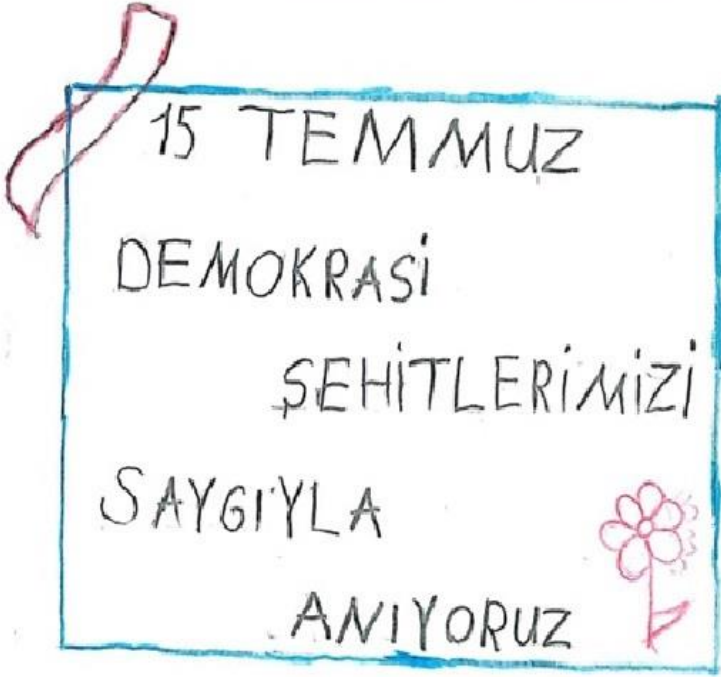 15 TEMMUZ
DEMOKRASİ
ŞEHİTLERİMİZİ
SAYGIYLA
ANIYORUZ